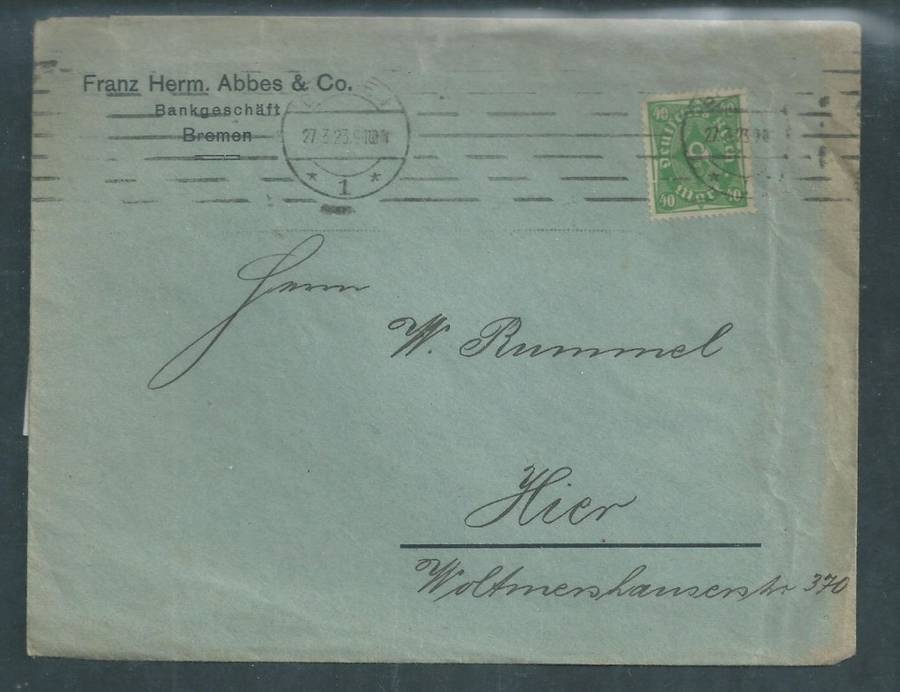 Franz Herm. Abbes & Co.
Bankgeschäft
Bremen
27.3.23.
* 1 *
40 40
Deutsches Reich
Mark
40 40
Herrn
W. Rummel
Hier
Woltmershauserstr 370